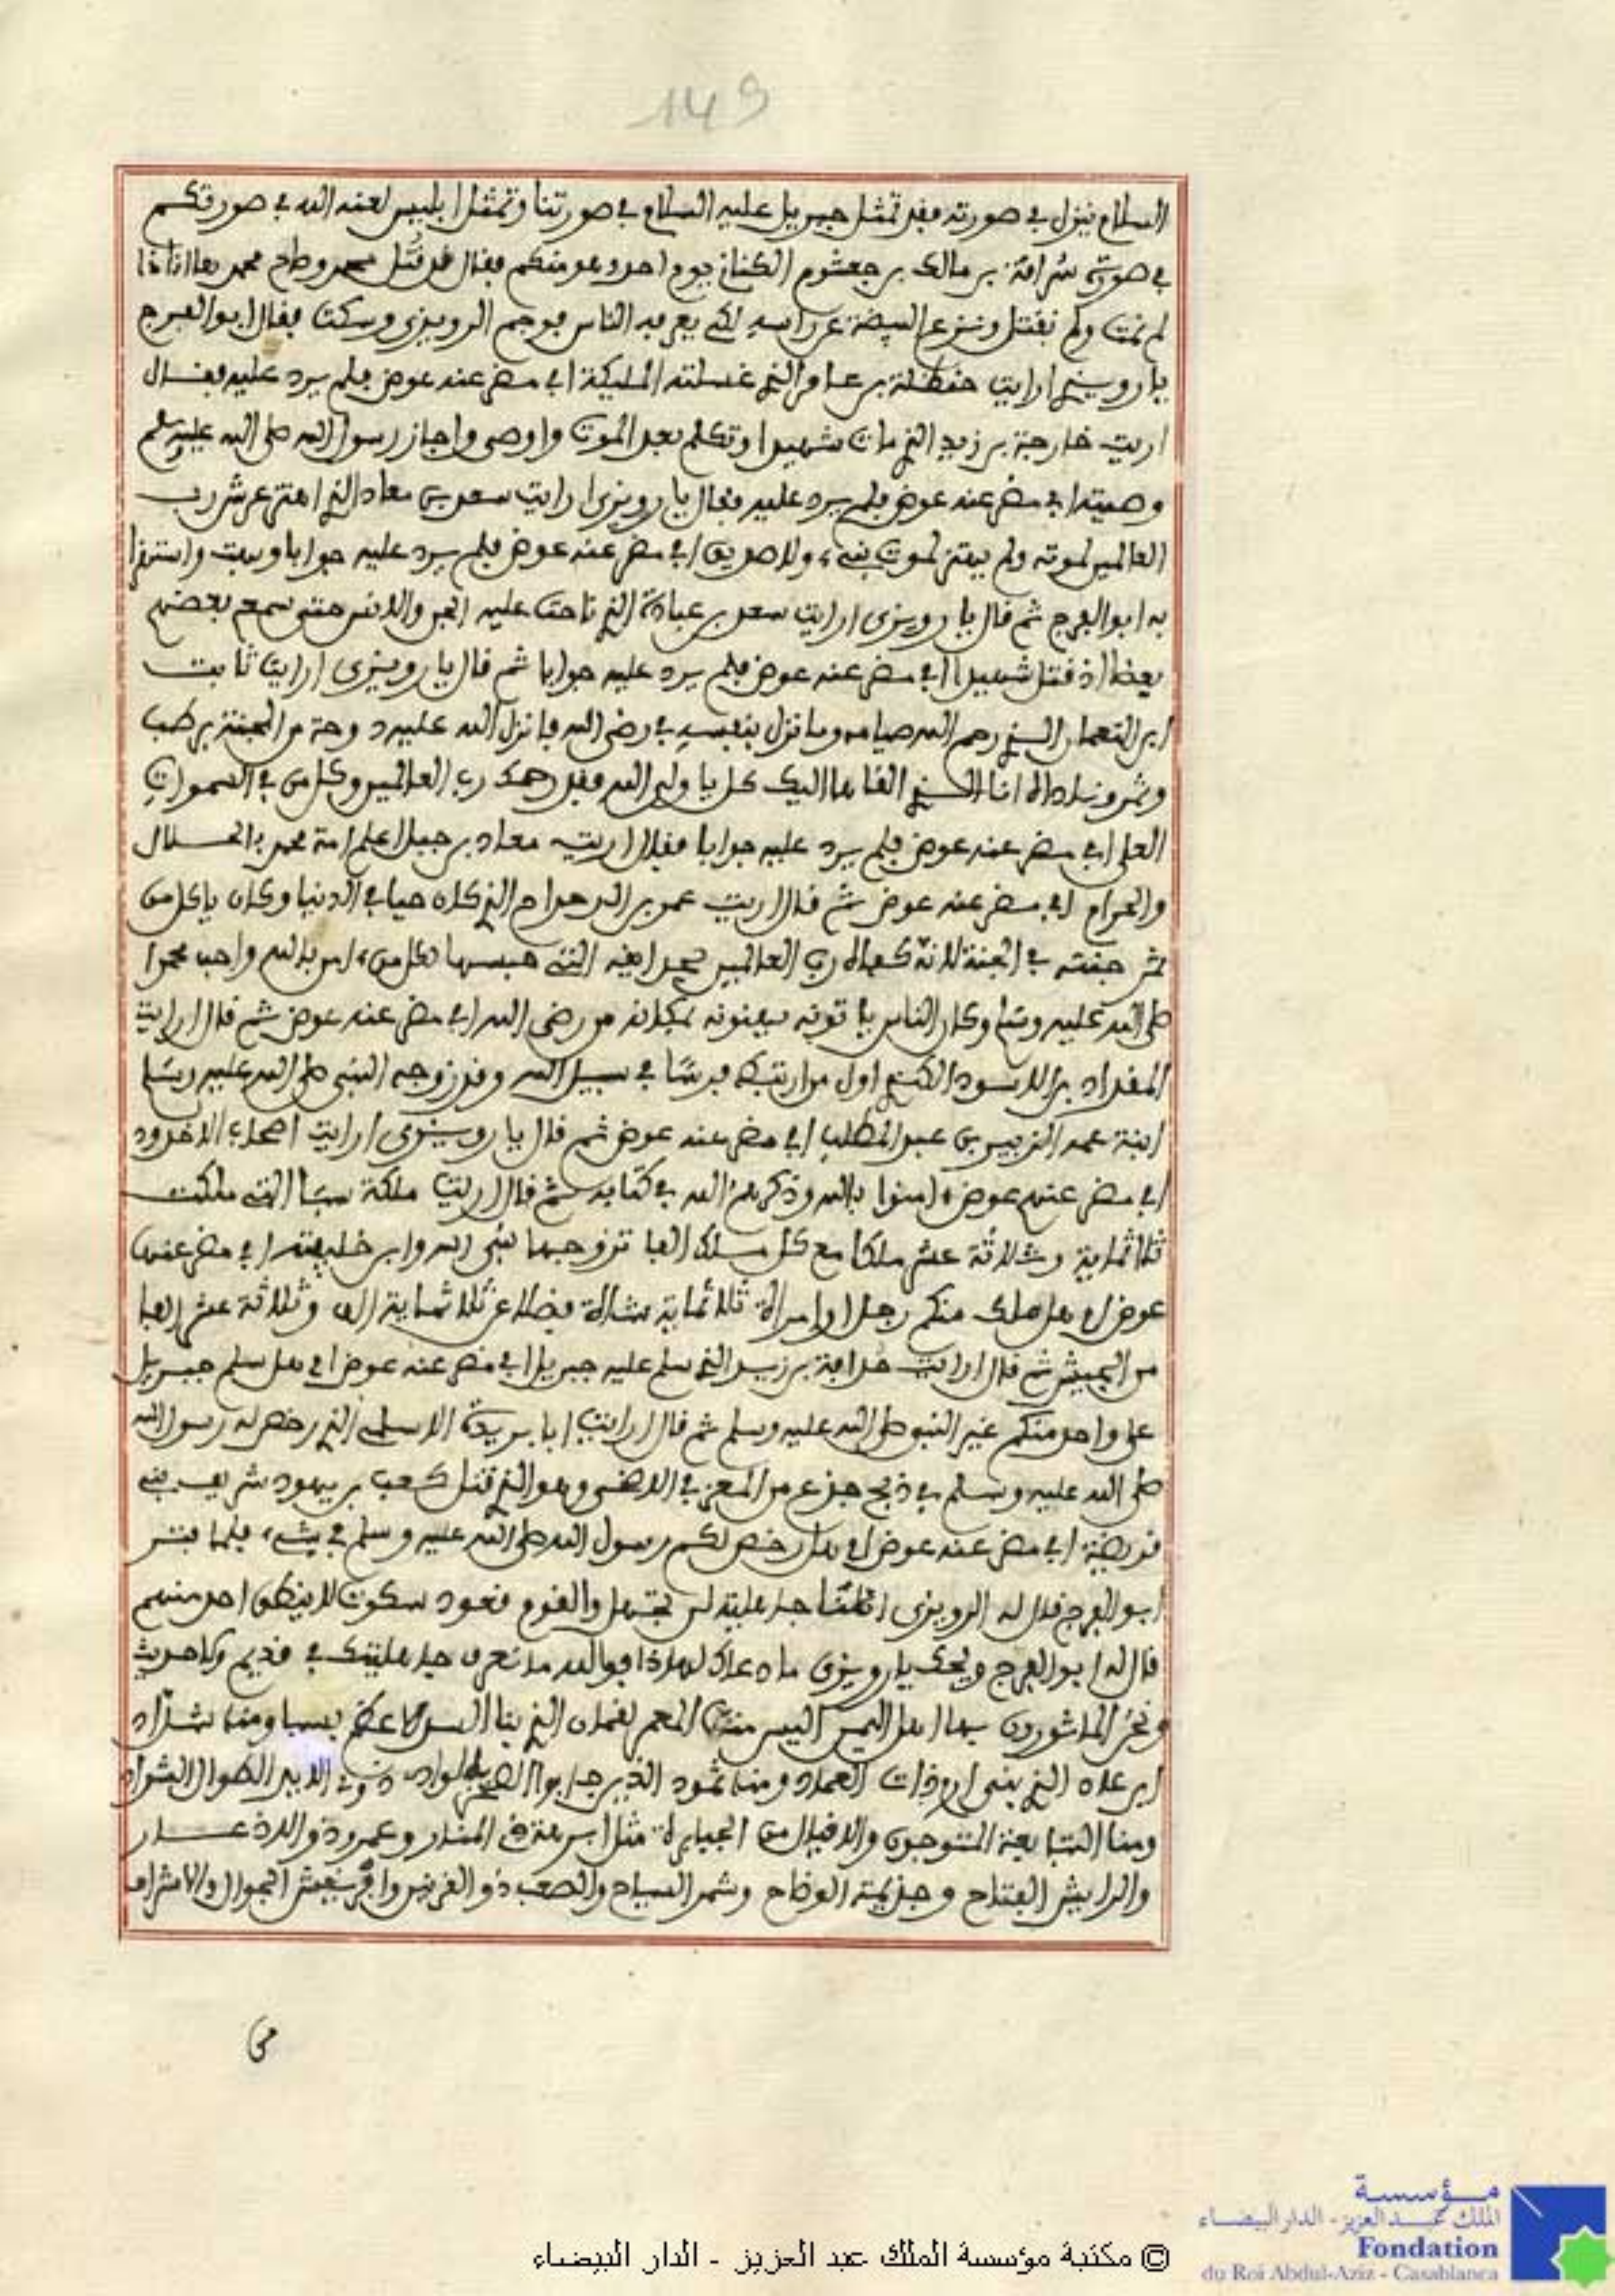 149
السلام ينزل في صورته فقد تمثل جبريل عليه السلام في صورتنا وتمثل ابليس لعنه الله في صورتكم
في صورة سراقة بن مالك بن جعشوم الكناني يوم احد وهو منكم فقال قد قتل محمد وطاح محمد
لم نمت ولم نقتل وننزع البيضة عن راسه لكي يعرفه الناس فوجم الرويزي وسكت فقال ابو الفرج
يا رويزي ارايت حنظلة بن عامر الذي غسلته المليكة اي مضر عنده عوض فلم يرد عليه فقال
اريت خارجة بن زيد الذي مات شهيدا وتكلم بعد الموت واوصى واجاز رسول الله صلى الله عليه وسلم
وصيته اي مضر عنده عوض فلم يرد عليه فقال يا رويزي ارايت سعد بن معاد الذي اهتز عرش رب
العالمين لموته ولم يهتز لموت نبيء ولا صديق اي مضر عنده عوض فلم يرد عليه جوابا وبهت واستهزا
به ابو الفرج ثم قال يا رويزي ارايت سعد بن عبادة الذي ناحت عليه الجن والانس حتى سمع بعضهم
بعضا اذ قتل شهيدا اي مضر عنده عوض فلم يرد عليه جوابا ثم قال يا رويزي ارايت ثابت
ابن النعمان الذي رحم الله صيامه وما نزل بنفسه في رضى الله فانزل الله عليه دوحة من الجنة برطب
وثمر
العلى اي مضر عنده عوض فلم يرد عليه جوابا فقال اريت معاد بن جبل اعلم امة محمد بالحلال
والحرام اي مضر عنده عوض ثم قال اريت عمر بن الدحداح الذي كان حيا في الدنيا وكان ياكل من
ثمر جنته في الجنة
صلى الله عليه وسلم وكان الناس ياتونه من رضى الله اي مضر عنده عوض ثم قال ارايت
المقداد بن الاسود الكندي اول من ارتبط فرسا في سبيل الله وقد زوجه النبي صلى الله عليه وسلم
ابنة عمه الزبير بن عبد المطلب اي مضر عنده عوض ثم قال يا رويزي ارايت اصحاب الاخدود
اي مضر عندهم عوض امنوا بالله وذكرهم الله في كتابه ثم قال اريت ملكة سبا التي ملكت
ثلاثماية وثلاثة عشر ملكا مع كل ملك الفا تزوجها نبي الله وابن خليفته اي مضر عندهن
عوض او هل ملك منكم رجل او امراة ثلاثماية شاة فضلا عن ثلاثماية الف وثلاثة عشر الفا
من الجيش ثم قال ارايت بن زيد الذي سلم عليه جبريل اي مضر عنده عوض اي هل سلم جبريل
على واحد منكم غير النبي صلى الله عليه وسلم ثم قال ارايت ابا بريدة الاسلمي الذي رخص له رسول الله
صلى الله عليه وسلم في ذبح جذع من المعز في الاضحى وهو الذي قتل كعب بن يهود شريف بني
قريضة اي مضر عنده عوض او هل رخص لكم رسول الله صلى الله عليه وسلم في شيء فلما فتر
ابو الفرج قال له الرويزي جاهلية لن تجهل والقوم قعود سكوت لا ينطق احد منهم
قال له ابو الفرج ويحك يا رويزي ما دعاك لهاذا فوالله ما نعرف جاهليتك في قديم ولا حديث
ونحن الماثورون بها اهل اليمن اليس منا المعمر لقمان الذي بنا السد ومنا شداد
ابن عاد الذي بنى ارم ذات العماد ومنا ثمود الذين جابوا الصخر بالواد
ومنا التبابعة المتوجون والاقيال من الجبابرة مثل ابرهة ذي المنار وعمرو ذو الاذعار
والرايش الفتاح وجذيمة الوضاح وشمر السباح والصعب ذو القرنين وافريقيش الجوال والاشراف
من
© مكتبة مؤسسة الملك عبد العزيز - الدار البيضاء
مؤسسة
الملك عبد العزيز - الدار البيضاء
Fondation
du Roi Abdul-Aziz - Casablanca